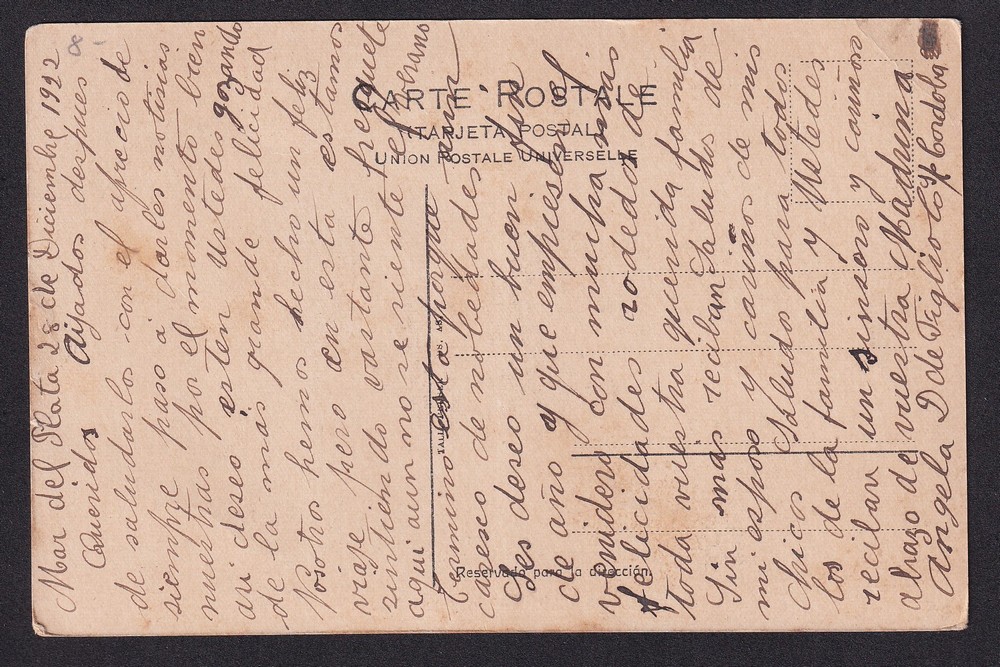 CARTE POSTALE
TARJETA POSTAL
UNION POSTALE UNIVERSELLE
Reservado para la dirección.
Mar del Plata 28 de Diciembre 1922
Queridos Aijados despues
de saludarlos con el aprecio de
siempre paso a darles noticias
nuestras por el momento bien
asi deseo esten Ustedes gozando
de la mas grande felicidad
Nosotros hemos hecho un feliz
viaje pero en esta estamos
sintiendo vastante fresquete
aqui aun no se siente el verano
Termino esta porque aun
caresco de nobedades fin
les deseo un buen fin
de año y que empiesen el
venidero con mucha mas
felicidades rodeado de
toda vuestra querida familia
Sin mas reciban Saludos de
mi esposo y cariños de mis
chicos Saludos para todos
los de la familia y Ustedes
recilan un sinsero y cariñoso
abrazo de vuestra Madrina
Angela D de Figliolo y Cordoba